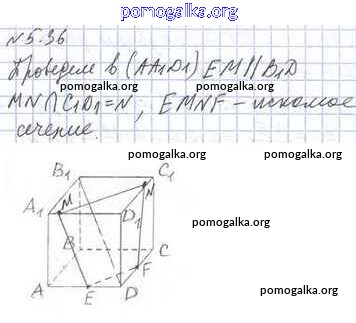 pomogalka.org
№5.36
Проведем в (AA1D1) EM || B1D
MN ∩ C1D1 = N, EMNF – искомое
сечение.
pomogalka.org
pomogalka.org
pomogalka.org
B1 C1
A1 M D1 N
pomogalka.org
B C
F
A E D
pomogalka.org
pomogalka.org